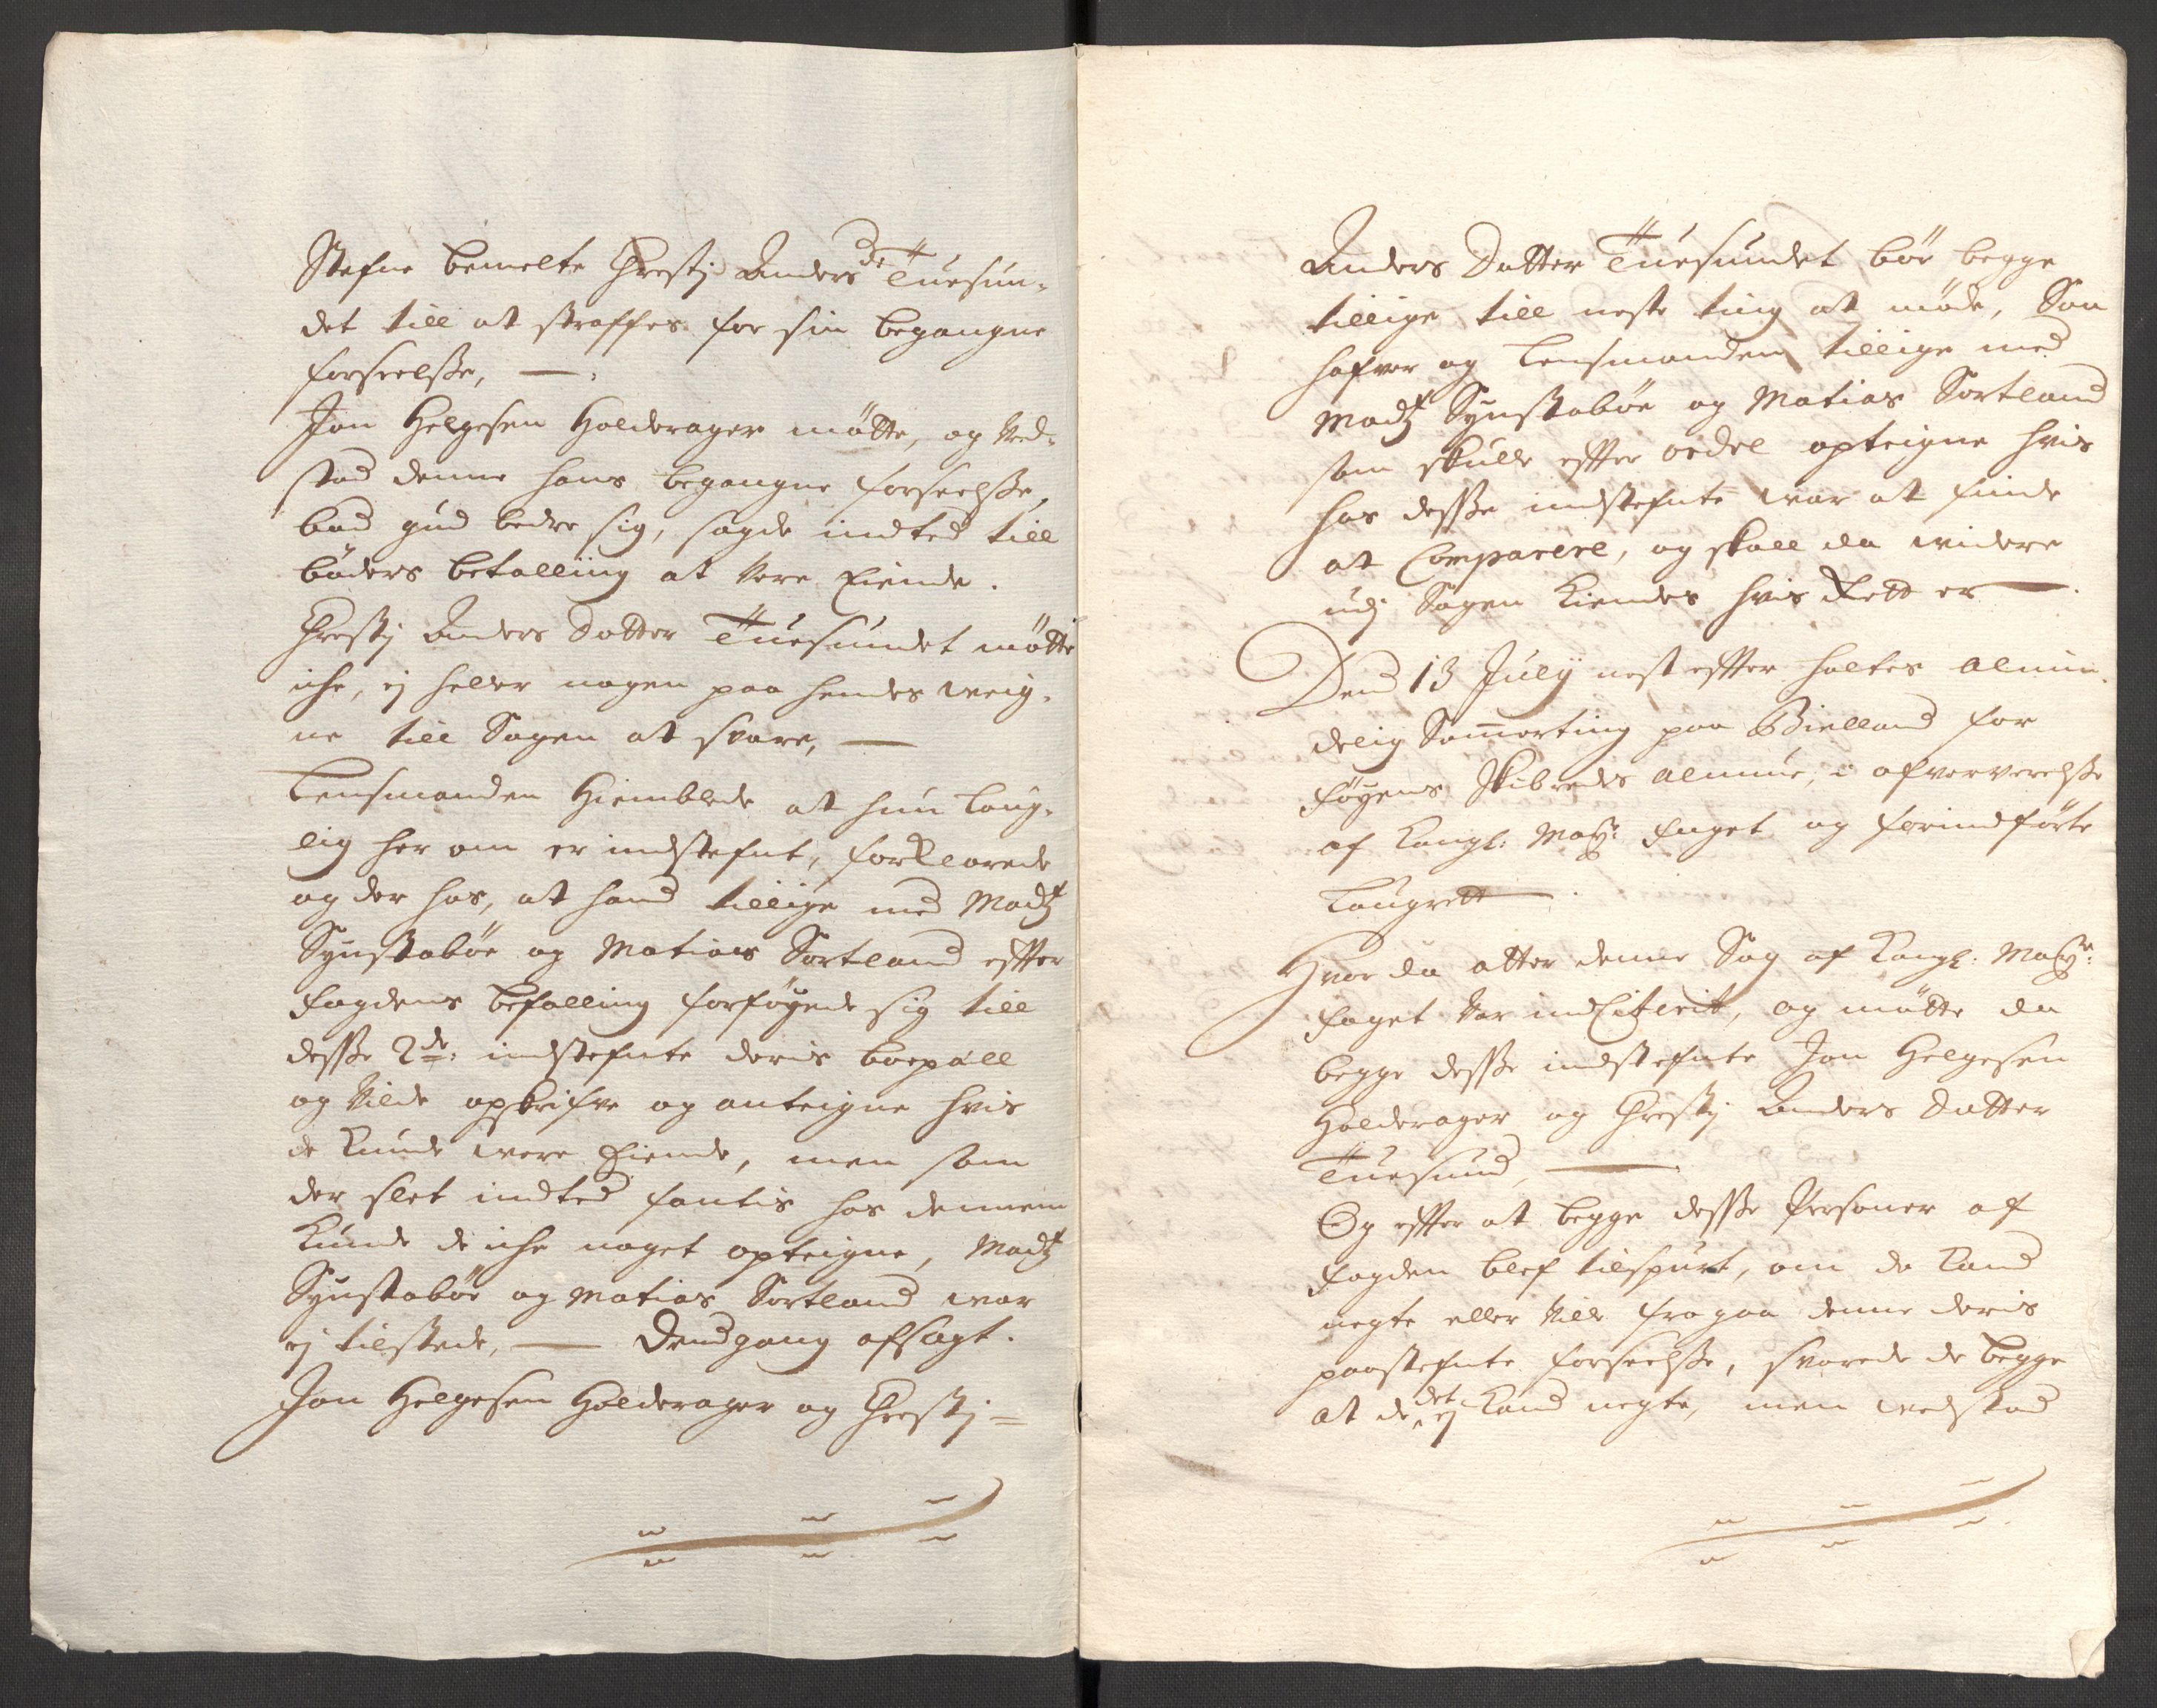 Stefne bemelte Chrestj Anders de Tuesun-
det till at straffes for sin begangne
forseelsse, —
Jon Helgesen Holderager mötte, og ved-
stod denne hans begangne forseelsse,
bad gud bedre sig, sagde indted till
böders betalling at vere Eiende.
Chrestj Anders Datter Tuesundet mötte
iche, ej heller nogen paa hendes weig-
ne till Sagen at svare, —
Lensmanden Hiemblede at hun loug-
lig her om er indstefnt, forklarede
og der hos, at hand tillige med Madtz
Synstabøe og Matias Sortland effter
fogdens befalling forføyede sig till
desse 2de: indstefnte deris boepæll
og vilde opskrifve og anteigne hvis
de kunde were Eiende, men som
der slet indted fantis hos dennem
kunde de iche noget opteigne, Madtz
Synstabøe og Matias Sortland war
ej tilstede, — Dend gang afsagt.
Jon Helgesen Holderager og Chrestj =
Anders Datter Tuesundet bör begge
tillige till neste ting at møde, Som
hafver og Lensmanden tillige med
Madtz Synstabøe og Matias Sortland
som skulle effter ordre opteigne hvis
hos desse indstefnte war at finde
at Comparere, og skall da widere
udj Sagen kiendes hvis Rett er —
Dend 13 Julij nest effter holtes almin-
delig Sommerting paa Bielland for
føyens Skibredes almue, i ofververelsse
af Kongl: May: foget og forindförte
Laugrett
Hvor da atter denne Sag af Kongl: May:
foget var indCiterit, og mötte da
begge desse indstefnte Jon Helgesen
Holderager og Chrestj Anders Datter
Tuesund, —
Og effter at begge desse Personer af
fogden blef tilspurt, om de kand
negte eller ville fragaa denne deris
paastefnte forseelsse, svarede de begge
at de det ej kand negte, men vedstod